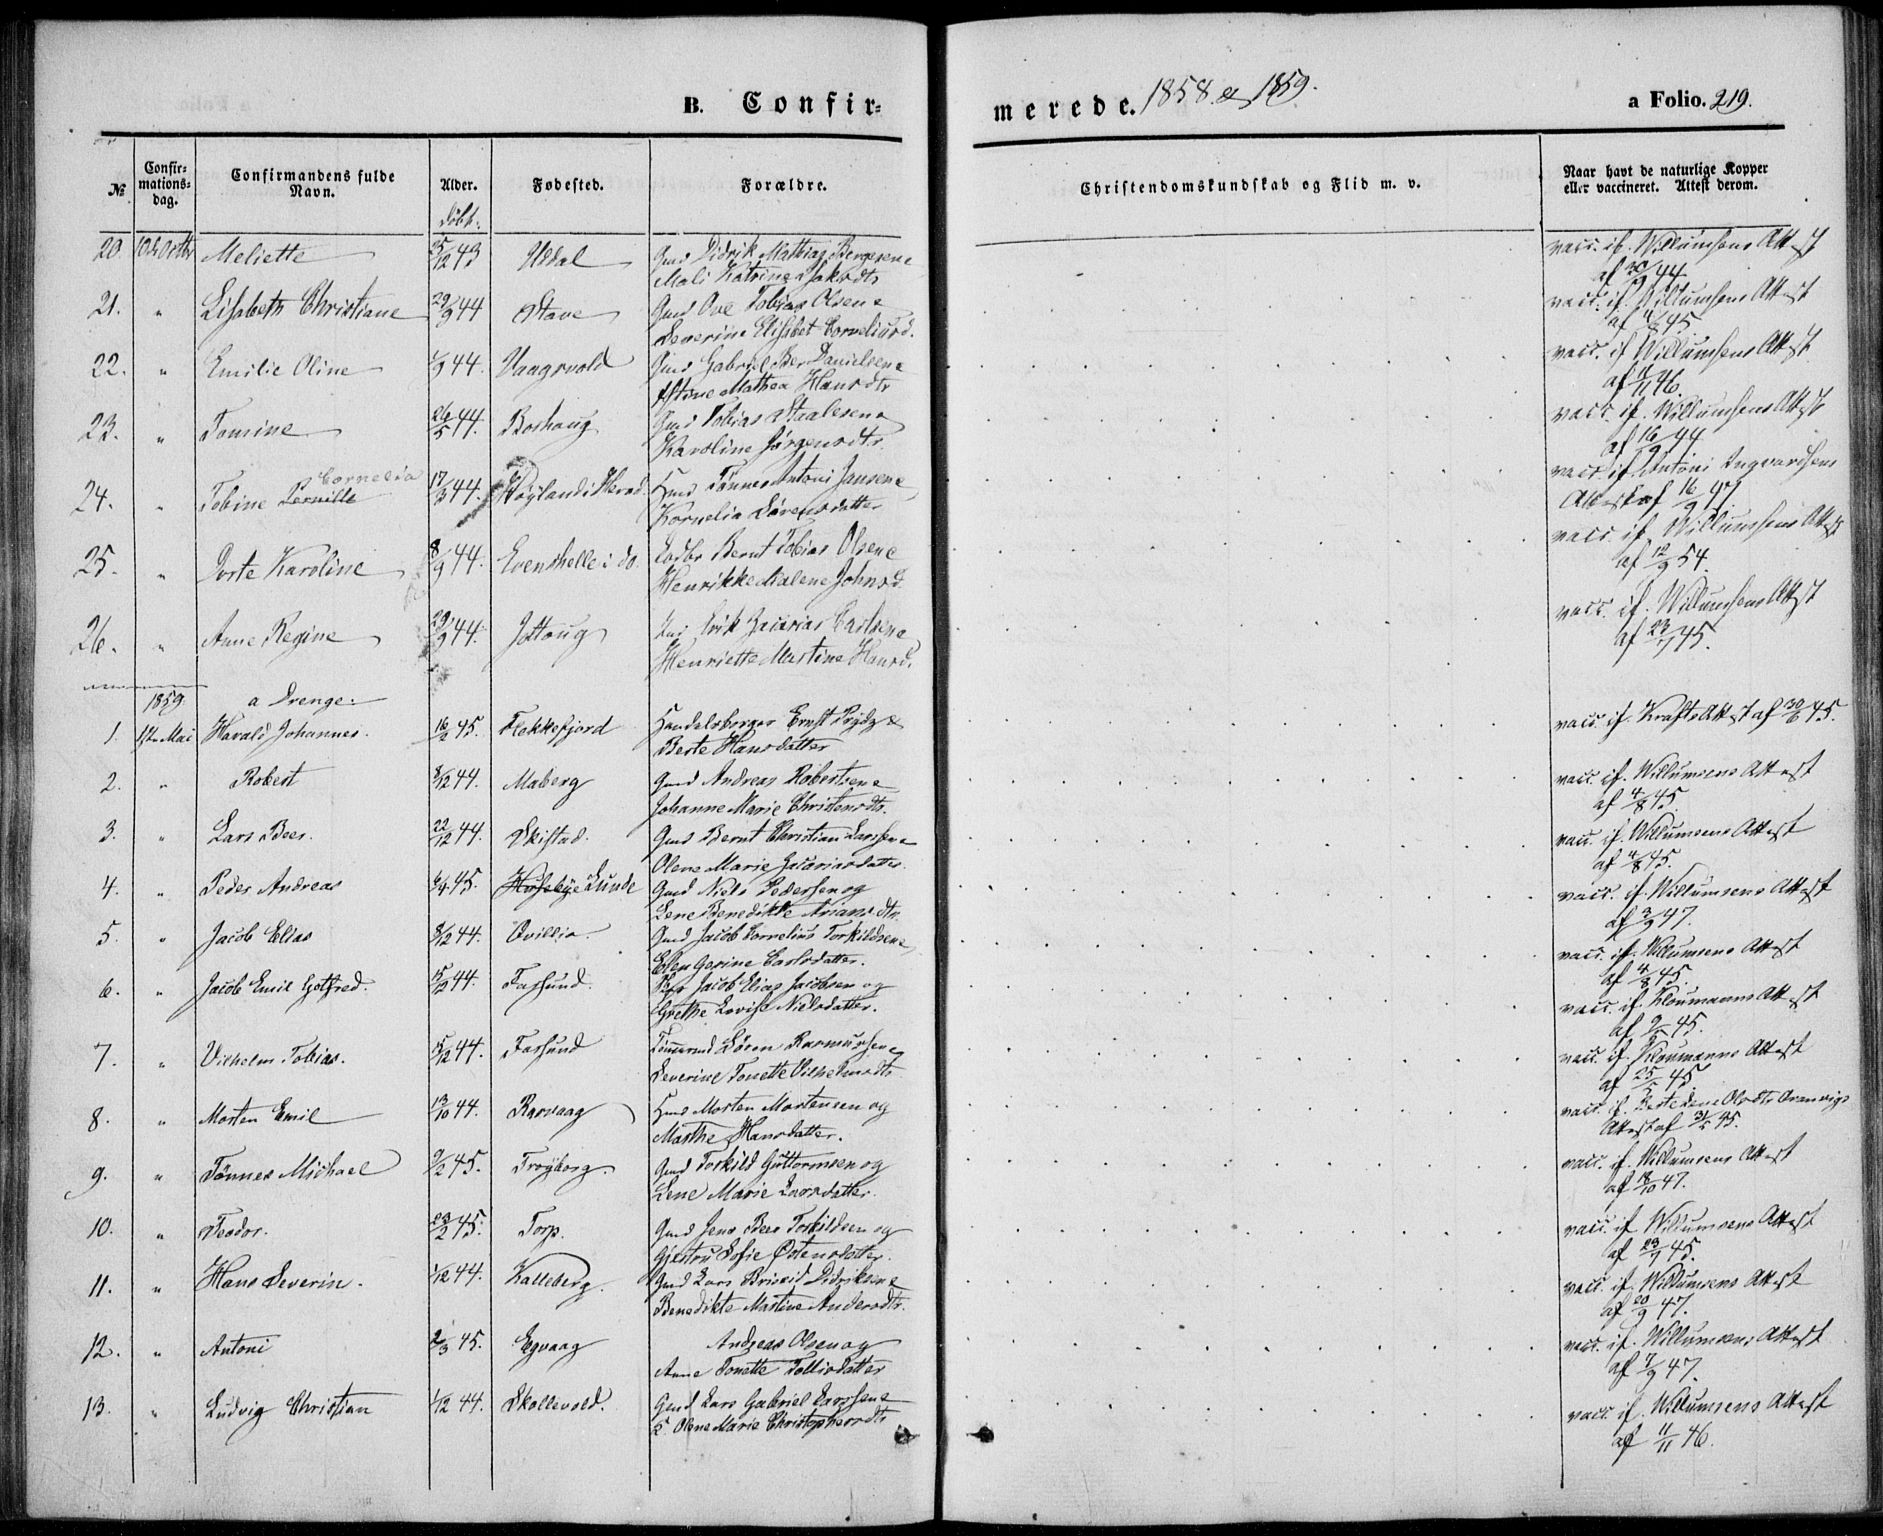 B. Confir=
merede. 1858 & 1859.
a Folio. 219.
№
Confir=
mations=
dag.
Confirmandens fulde
Navn.
Alder.
døbt.
Fødested.
Forældre.
Christendomskundskab og Flid m. v.
Naar havt de naturlige Kopper
eller vaccineret. Attest derom.
20. 10de Octbr Meliette 25/12 43 Uddal Gmd Didrik Mathias Bergesen &
Mali Katrine Isaksdtr
vacc. if. Willumsens Attest
af 20/9 44.
21. " Lisabeth Christiane 29/9 44 Stave Gmd Ove Tobias Olsen &
Severine Elisabet Corneliusd.
vacc. if. Willumsens Attest
af 4/8 45.
22. " Emilie Oline 1/9 44. Vaagsvold Gmd Gabriel Beer Danielsen &
Mathea Hansdtr
vacc. if. Willumsens Attest
af 11/11 46.
23. " Tomine 26/5 44. Borhaug Gmd Tobias Staalesen &
Karoline Jørgensdtr
vacc. if. Willumsens Attest
af 16/9 44.
24. " Tobine Pernille Cornelia 17/3 44. Høyland i Herad Hmd Tønnes Antoni Jansen &
Kornelia Sørensdatter
vacc. if. Antoni Ingvardsens
Attest af 16/9 47.
25. " Dorte Karoline 8/9 44. Evenshelle i do. Bernt Tobias Olsen &
Henrikke Malene Johnsd.
vacc. if. Willumsens Attest
af 12/9 54.
26. " Anne Regine 29/9 44. Jottoug Erik Zacarias Carlsen &
Henriette Martine Hansd.
vacc. if. Willumsens Attest
af 23/7 45.
1859. a Drenge.
1. 1ste Mai Harald Johannes. 16/2 45. Flekkefjord Handelsborger Ernst Prydz &
Berte Hansdatter
vacc. if. Krafts Attest af 30/6 45.
2. " Robert 8/12 44. Maberg Gmd Andreas Robertsen &
Johanne Marie Christensdtr.
vacc. if. Willumsens Attest
af 4/8 45.
3. " Lars Beer. 22/12 44. Skistad. Gmd Bernt Christian Larssen &
Olene Marie Zacariasdatter
vacc. if. Willumsens Attest
af 4/8 45.
4. " Peder Andreas 6/4 45. Huseby Lunde Gmd Niels Pedersen og
Lene Benedikte Ariansdtr.
vacc. if. Willumsens Attest
af 3/9 47.
5. " Jacob Elias 8/12 44. Qvillia. Gmd Jacob Cornelius Torkildsen &
Elen Gerine Carlsdatter.
vacc. if. Willumsens Attest
af 4/8 45.
6. " Jacob Emil Gotfred. 15/12 44. Farsund. Jacob Elias Jacobsen og
Grethe Lovise Nielsdatter.
vacc. if. Kloumanns Attest
af 9/5 45.
7. " Vilhelm Tobias. 15/12 44. Farsund Tømmermd Søren Rasmussen &
Severine Tonette Vilhelmsdtr
vacc. if. Kloumanns Attest
af 25/5 45
8. " Morten Emil 13/10 44. Rarvaag Hmd Morten Mortensen og
Marthe Hansdatter.
vacc. if. Berte Lene Olsdtr Tranvigs
Attest af 31/5 45.
9. " Tønnes Michael 9/2 45. Trøyborg. Gmd Torkild Guttormsen og
Lene Marie Larsdatter.
vacc. if. Willumsens Attest
af 18/10 47.
10. " Teodor. 23/2 45. Torp. Gmd Jens Beer Torkildsen og
Gjertru Sofie Østensdatter.
vacc. if. Willumsens Attest
af 23/7 45.
11. " Hans Severin. 1/12 44. Kalleberg. Gmd Lars Didriksen &
Benedikte Martine Andersdtr.
vacc. if. Willumsens Attest
af 20/9 47.
12. " Antoni 2/3 45. Egvaag Andreas Olsen og
Anne Tonette Tollisdatter
vacc. if. Willumsens Attest
af 7/9 47.
13. " Ludvig Christian 1/12 44. Skollevold. Gmd Lars Gabriel Larssen &
Olene Marie Christophersdtr
vacc. if. Willumsens Attest
af 11/11 46.